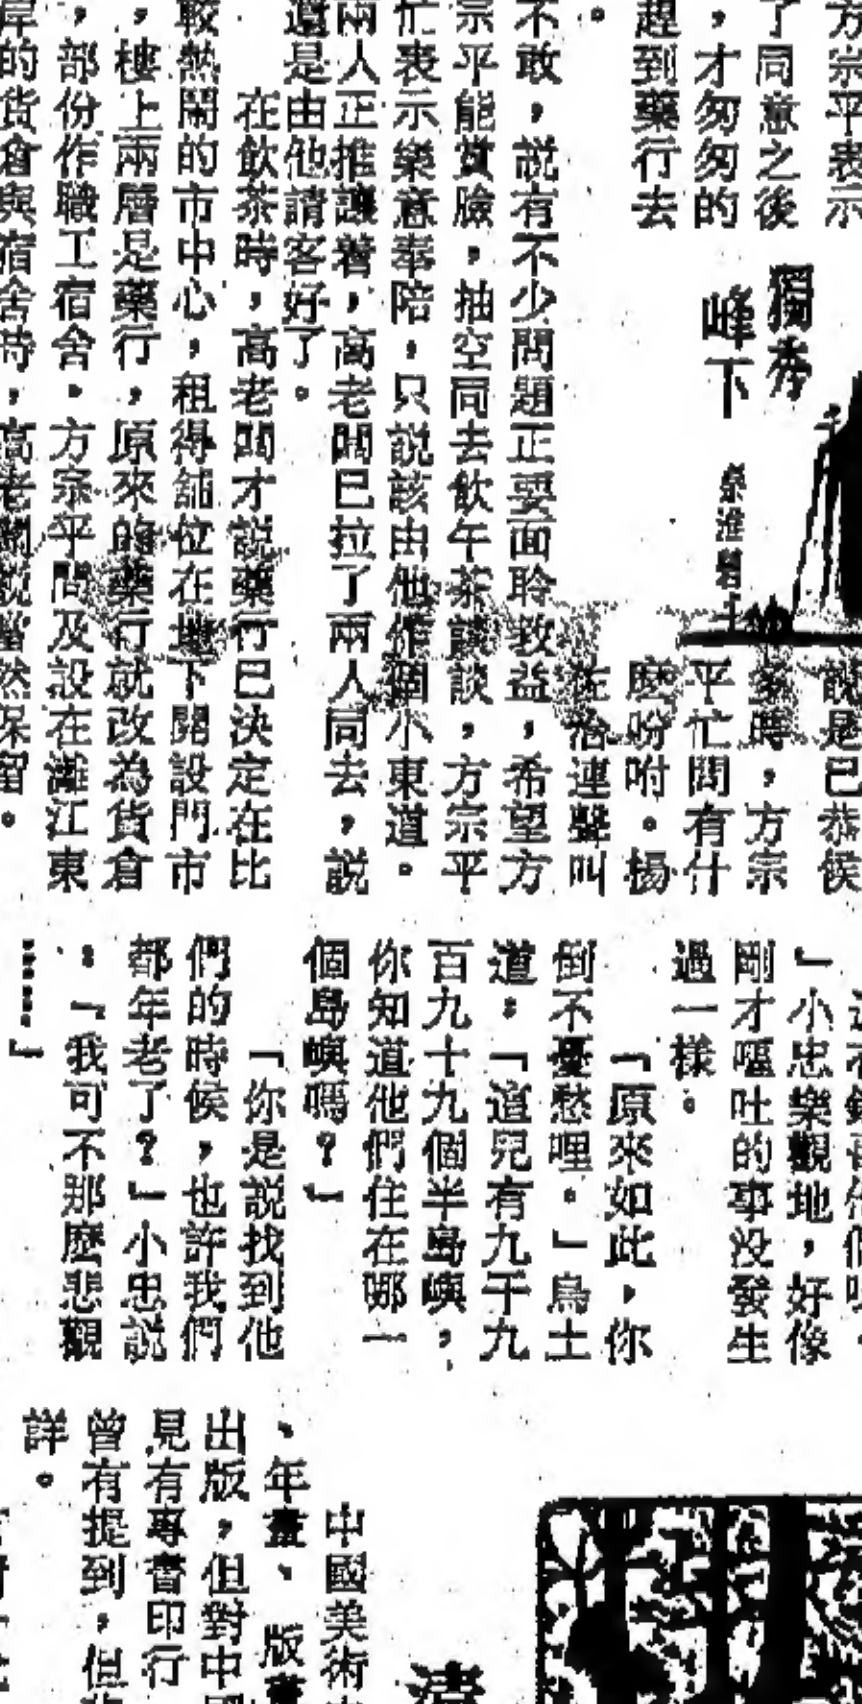 方宗平表示
了同意之後
，才匆匆的
趕到藥行去
。
獨秀
峰下
說是已恭候
多時，方宗
平忙問有什
麽吩咐。楊
佐治連聲叫
不敢，説有不少問題正要面聆教益，希望方
宗平能賞臉，抽空同去飲午茶談談，方宗平
忙表示樂意奉陪，只説該由他作個小東道。
兩人正推讓着，高老闆已拉了兩人同去，説
還是由他請客好了。
在飲茶時，高老闆才説藥行已決定在比
較熱鬧的市中心，租得舖位在地下開設門市
，樓上兩層是藥行，原來的藥行就改為貨倉
，部份作職工宿舍。方宗平問及設在灕江東
岸的貨倉與宿舍時，高老闆説當然保留。
」小忠樂觀地，好像
剛才嘔吐的事没發生
過一樣。
「原來如此，你
倒不憂愁哩。」烏土
道：「這兒有九千九
百九十九個半島嶼，
你知道他們住在哪一
個島嶼嗎？」
「你是説找到他
們的時候，也許我們
都年老了？」小忠説
：「我可不那麼悲觀
……」
中國美術
、年畫、版畫
出版，但對中國
見有專書印行
曾有提到，但
詳。
清